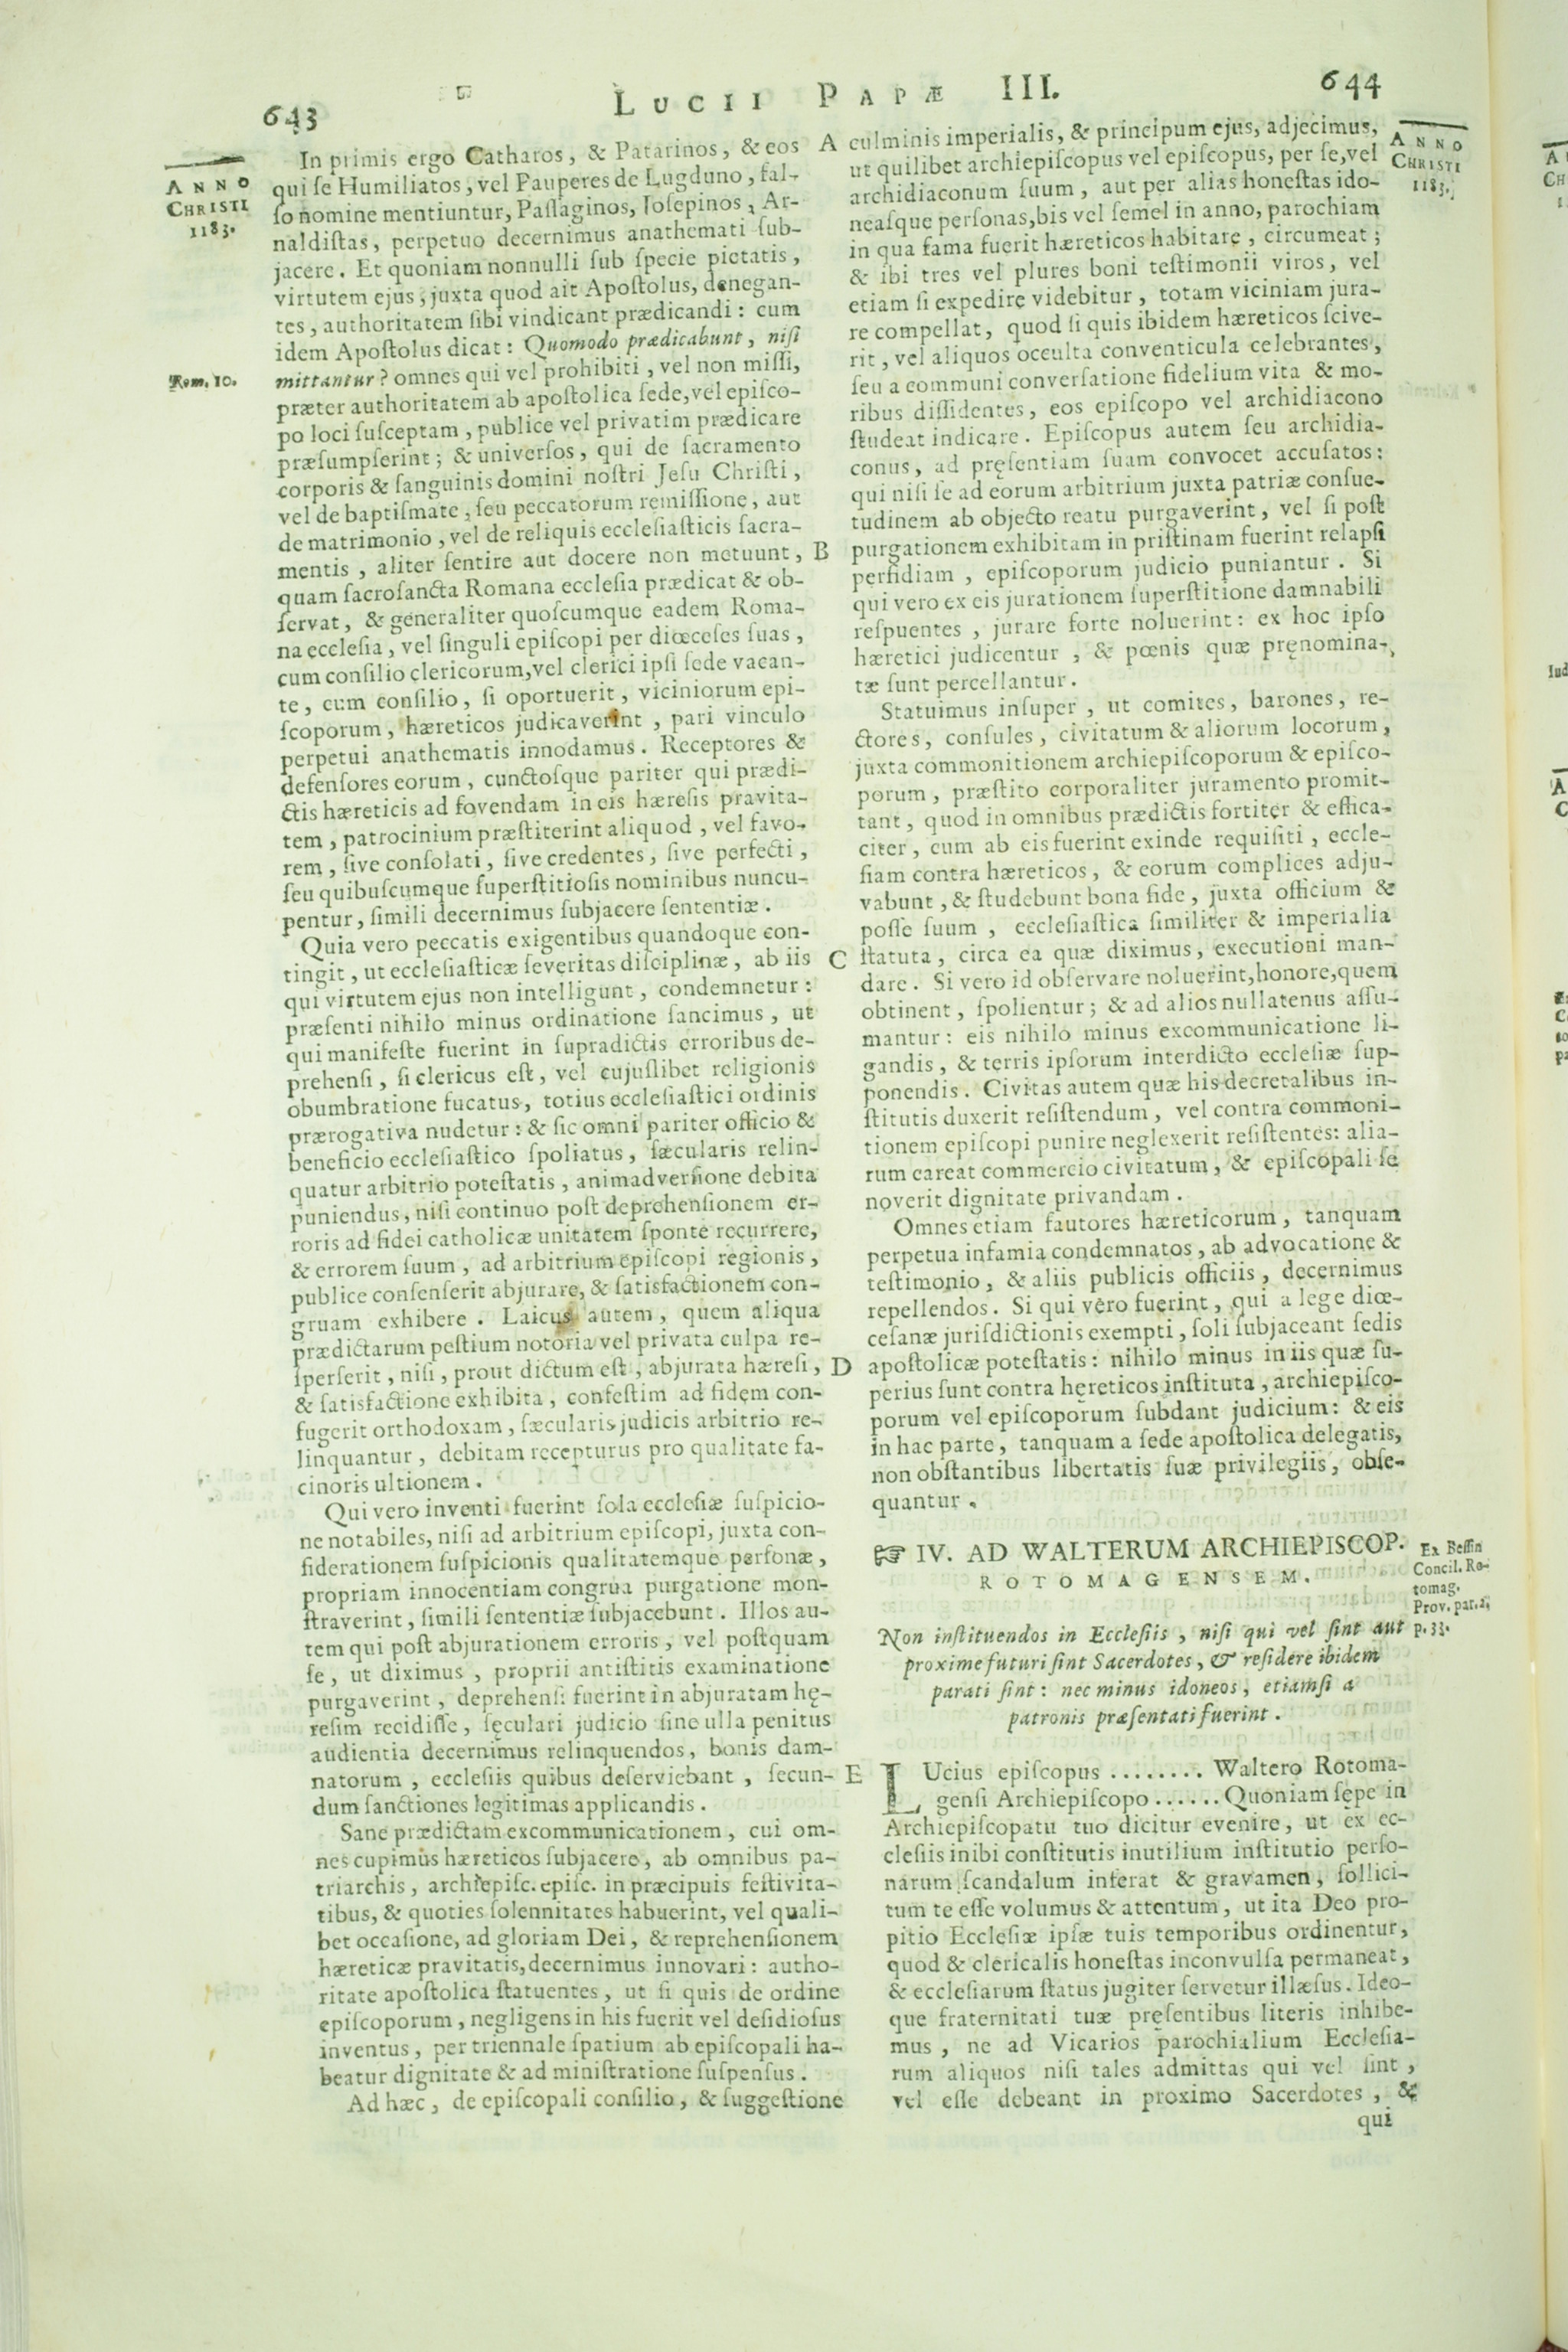 643
LUCII PAPÆ III.
644
ANNO
CHRISTI
1183.
In primis ergo Catharos, & Patarinos, & eos
qui ſe Humiliatos, vel Pauperes de Lugduno, fal-
ſo nomine mentiuntur, Paſſaginos, Joſepinos, Ar-
naldiſtas, perpetuo decernimus anathemati ſub-
jacere. Et quoniam nonnulli ſub ſpecie pietatis,
virtutem ejus, juxta quod ait Apoſtolus, denegan-
tes, authoritatem ſibi vindicant prædicandi: cum
idem Apoſtolus dicat: Quomodo prædicabunt, niſi
Rom. 10.
mittantur? omnes qui vel prohibiti, vel non miſſi,
præter authoritatem ab apoſtolica ſede, vel epiſco-
po loci ſuſceptam, publice vel privatim prædicare
præſumpſerint; & univerſos, qui de ſacramento
corporis & ſanguinis domini noſtri Jeſu Chriſti,
vel de baptiſmate, ſeu peccatorum remiſſione, aut
de matrimonio, vel de reliquis eccleſiaſticis ſacra-
mentis, aliter ſentire aut docere non metuunt,
quam ſacroſancta Romana eccleſia prædicat & ob-
ſervat, & generaliter quoſcumque eadem Roma-
na eccleſia, vel ſinguli epiſcopi per diœceſes ſuas,
cum conſilio clericorum, vel clerici ipſi ſede vacan-
te, cum conſilio, ſi oportuerit, viciniorum epi-
ſcoporum, hæreticos judicaverint, pari vinculo
perpetui anathematis innodamus. Receptores &
defenſores eorum, cunctoſque pariter qui prædi-
ctis hæreticis ad fovendam in eis hæreſis pravita-
tem, patrocinium præſtiterint aliquod, vel favo-
rem, ſive conſolati, ſive credentes, ſive perfecti,
ſeu quibuſcumque ſuperſtitioſis nominibus nuncu-
pentur, ſimili decernimus ſubjacere ſententiæ.
Quia vero peccatis exigentibus quandoque con-
tingit, ut eccleſiaſticæ ſeveritas diſciplinæ, ab iis
qui virtutem ejus non intelligunt, condemnetur:
præſenti nihilo minus ordinatione ſancimus, ut
qui manifeſte fuerint in ſupradictis erroribus de-
prehenſi, ſi clericus eſt, vel cujuſlibet religionis
obumbratione fucatus, totius eccleſiaſtici ordinis
prærogativa nudetur: & ſic omni pariter officio &
beneficio eccleſiaſtico ſpoliatus, ſæcularis relin-
quatur arbitrio poteſtatis, animadverſione debita
puniendus, niſi continuo poſt deprehenſionem er-
roris ad fidei catholicæ unitatem ſponte recurrere,
& errorem ſuum, ad arbitrium epiſcopi regionis,
publice conſenſerit abjurare, & ſatisfactionem con-
gruam exhibere. Laicus autem, quem aliqua
prædictarum peſtium notoria vel privata culpa re-
ſperſerit, niſi, prout dictum eſt, abjurata hæreſi,
& ſatisfactione exhibita, confeſtim ad fidem con-
fugerit orthodoxam, ſæcularis judicis arbitrio re-
linquantur, debitam recepturus pro qualitate fa-
cinoris ultionem.
Qui vero inventi fuerint ſola eccleſiæ ſuſpicio-
ne notabiles, niſi ad arbitrium epiſcopi, juxta con-
ſiderationem ſuſpicionis qualitatemque perſonæ,
propriam innocentiam congrua purgatione mon-
ſtraverint, ſimili ſententiæ ſubjacebunt. Illos au-
tem qui poſt abjurationem erroris, vel poſtquam
ſe, ut diximus, proprii antiſtitis examinatione
purgaverint, deprehenſi fuerint in abjuratam hę-
reſim recidiſſe, ſęculari judicio ſine ulla penitus
audientia decernimus relinquendos, bonis dam-
natorum, eccleſiis quibus deſerviebant, ſecun-
dum ſanctiones legitimas applicandis.
Sane prædictam excommunicationem, cui om-
nes cupimus hæreticos ſubjacere, ab omnibus pa-
triarchis, archiepiſc. epiſc. in præcipuis feſtivita-
tibus, & quoties ſolennitates habuerint, vel quali-
bet occaſione, ad gloriam Dei, & reprehenſionem
hæreticæ pravitatis, decernimus innovari: autho-
ritate apoſtolica ſtatuentes, ut ſi quis de ordine
epiſcoporum, negligens in his fuerit vel deſidioſus
inventus, per triennale ſpatium ab epiſcopali ha-
beatur dignitate & ad miniſtratione ſuſpenſus.
Ad hæc, de epiſcopali conſilio, & ſuggeſtione
A
B
C
D
E
culminis imperialis, & principum ejus, adjecimus,
ut quilibet archiepiſcopus vel epiſcopus, per ſe, vel
archidiaconum ſuum, aut per alias honeſtas ido-
neaſque perſonas, bis vel ſemel in anno, parochiam
in qua fama fuerit hæreticos habitare, circumeat;
& ibi tres vel plures boni teſtimonii viros, vel
etiam ſi expedire videbitur, totam viciniam jura-
re compellat, quod ſi quis ibidem hæreticos ſcive-
rit, vel aliquos occulta conventicula celebrantes,
ſeu a communi converſatione fidelium vita & mo-
ribus diſſidentes, eos epiſcopo vel archidiacono
ſtudeat indicare. Epiſcopus autem ſeu archidia-
conus, ad pręſentiam ſuam convocet accuſatos:
qui niſi ſe ad eorum arbitrium juxta patriæ conſue-
tudinem ab objecto reatu purgaverint, vel ſi poſt
purgationem exhibitam in priſtinam fuerint relapſi
perfidiam, epiſcoporum judicio puniantur. Si
qui vero ex eis jurationem ſuperſtitione damnabili
reſpuentes, jurare forte noluerint: ex hoc ipſo
hæretici judicentur, & pœnis quæ pręnomina-
tæ ſunt percellantur.
Statuimus inſuper, ut comites, barones, re-
ctores, conſules, civitatum & aliorum locorum,
juxta commonitionem archiepiſcoporum & epiſco-
porum, præſtito corporaliter juramento promit-
tant, quod in omnibus prædictis fortiter & effica-
citer, cum ab eis fuerint exinde requiſiti, eccle-
ſiam contra hæreticos, & eorum complices adju-
vabunt, & ſtudebunt bona fide, juxta officium &
poſſe ſuum, eccleſiaſtica ſimiliter & imperialia
ſtatuta, circa ea quæ diximus, executioni man-
dare. Si vero id obſervare noluerint, honore, quem
obtinent, ſpolientur; & ad alios nullatenus aſſu-
mantur: eis nihilo minus excommunicatione li-
gandis, & terris ipſorum interdicto eccleſiæ ſup-
ponendis. Civitas autem quæ his decretalibus in-
ſtitutis duxerit reſiſtendum, vel contra commoni-
tionem epiſcopi punire neglexerit reſiſtentes: alia-
rum careat commercio civitatum, & epiſcopali ſe
noverit dignitate privandam.
Omnes etiam fautores hæreticorum, tanquam
perpetua infamia condemnatos, ab advocatione &
teſtimonio, & aliis publicis officiis, decernimus
repellendos. Si qui vero fuerint, qui a lege diœ-
ceſanæ juriſdictionis exempti, ſoli ſubjaceant ſedis
apoſtolicæ poteſtatis: nihilo minus in iis quæ ſu-
perius ſunt contra hęreticos inſtituta, archiepiſco-
porum vel epiſcoporum ſubdant judicium: & eis
in hac parte, tanquam a ſede apoſtolica delegatis,
non obſtantibus libertatis ſuæ privilegiis, obſe-
quantur.
ANNO
CHRISTI
1183.
☞ IV. AD WALTERUM ARCHIEPISCOP.
ROTOMAGENSEM.
Ex Beſſin
Concil. Ro-
tomag.
Prov. par. 2,
p. 33.
Non inſtituendos in Eccleſiis, niſi qui vel ſint aut
proxime futuri ſint Sacerdotes, & reſidere ibidem
parati ſint: nec minus idoneos, etiamſi a
patronis præſentati fuerint.
LUcius epiſcopus ........ Waltero Rotoma-
genſi Archiepiſcopo ...... Quoniam ſępe in
Archiepiſcopatu tuo dicitur evenire, ut ex ec-
cleſiis inibi conſtitutis inutilium inſtitutio perſo-
narum ſcandalum inferat & gravamen, ſollici-
tum te eſſe volumus & attentum, ut ita Deo pro-
pitio Eccleſiæ ipſæ tuis temporibus ordinentur,
quod & clericalis honeſtas inconvulſa permaneat,
& eccleſiarum ſtatus jugiter ſervetur illæſus. Ideo-
que fraternitati tuæ pręſentibus literis inhibe-
mus, ne ad Vicarios parochialium Eccleſia-
rum aliquos niſi tales admittas qui vel ſint,
vel eſſe debeant in proximo Sacerdotes, &
qui